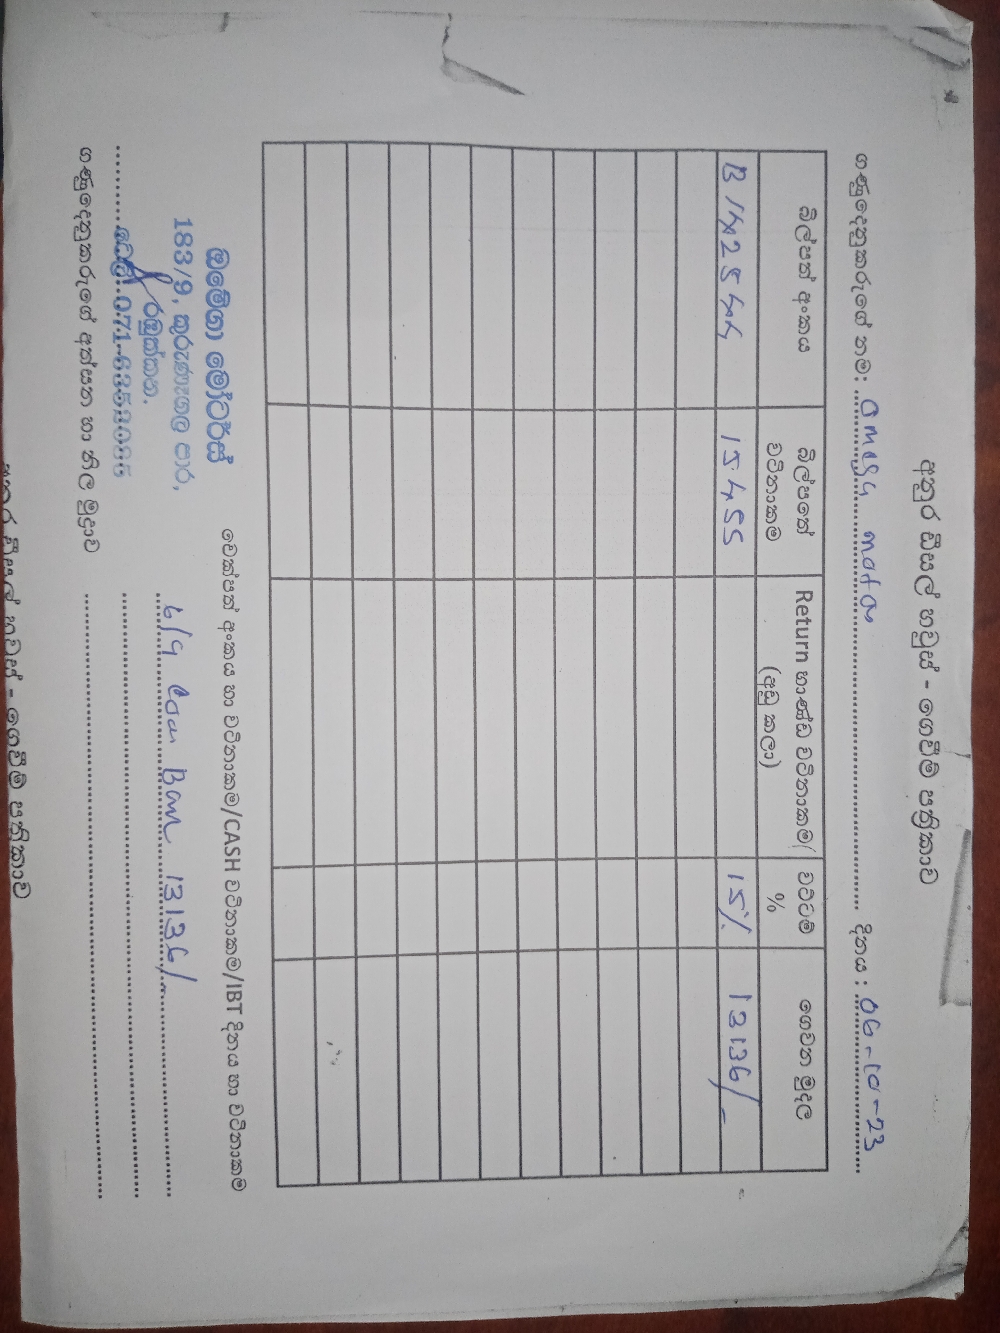 අනුර ඩීසල් හවුස් - ගෙවීම් පත්‍රිකාව
ගණුදෙනුකරුගේ නම: Omega motors දිනය : 06-10-23
බිල්පත් අංකය බිල්පතේ වටිනාකම Return භාණ්ඩ වටිනාකම/ (අඩු කලා) වට්ටම් % ගෙවන මුදල
B 142544 15455 15% 13136/-
චෙක්පත් අංකය හා වටිනාකම/CASH වටිනාකම/IBT දිනය හා වටිනාකම
ඔමේගා මෝටර්ස්
183/9, කුරුණෑගල පාර,
රඹුක්කන.
13136/-
ගණුදෙනුකරුගේ අත්සන හා නිල මුද්‍රාව
අනුර ඩීසල් හවුස් - ගෙවීම් පත්‍රිකාව